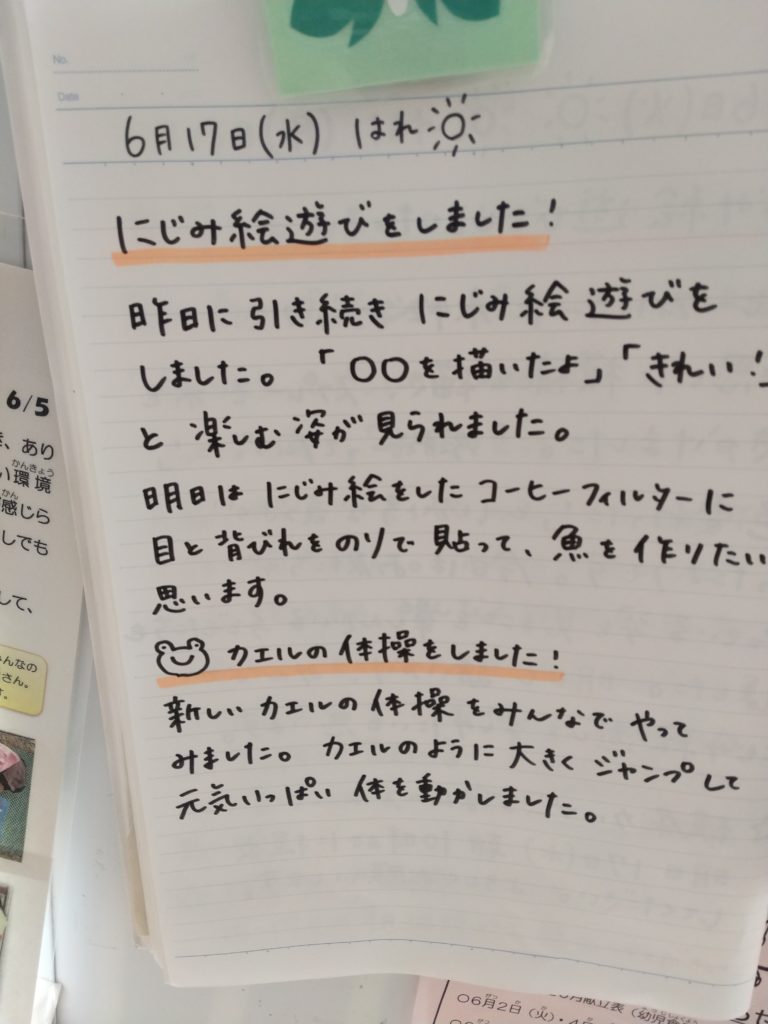 No.
Date
6月17日(水) はれ
にじみ絵遊びをしました!
昨日に引き続き にじみ絵 遊びを
しました。「〇〇を描いたよ」「きれい!」
と 楽しむ 姿が 見られました。
明日は にじみ絵をした コーヒーフィルターに
目と 背びれを のりで 貼って、魚を 作りたい
思います。
カエルの 体操をしました!
新しい カエルの 体操 をみんなで やって
みました。カエルのように 大きく ジャンプして
元気いっぱい 体を動かしました。
6/5
、あり
い環境
かんきょう
感じら
かん
しでも
して、
みんなの
さん。
す。
月献立表(幼児
〇6月2日(火)・4